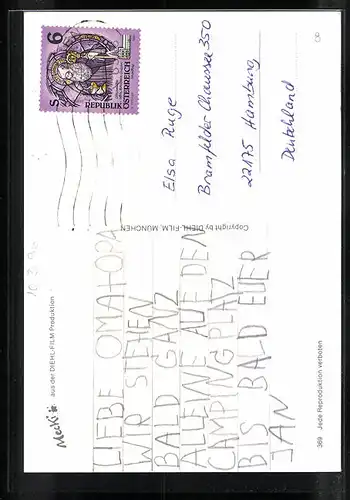 Mecki
aus der DIEHL-FILM Produktion
LIEBE OMA+OPA
WIR STEHEN
BALD GANZ
ALLEINE AUF DEN
CAMPINGPLATZ
BIS BALD EUER
JAN
369 Jede Reproduktion verboten
Copyright by DIEHL-FILM, MÜNCHEN
S 6
REPUBLIK ÖSTERREICH
Elsa Ruge
Bramfelder Chaussee 350
22175 Hamburg
Deutschland